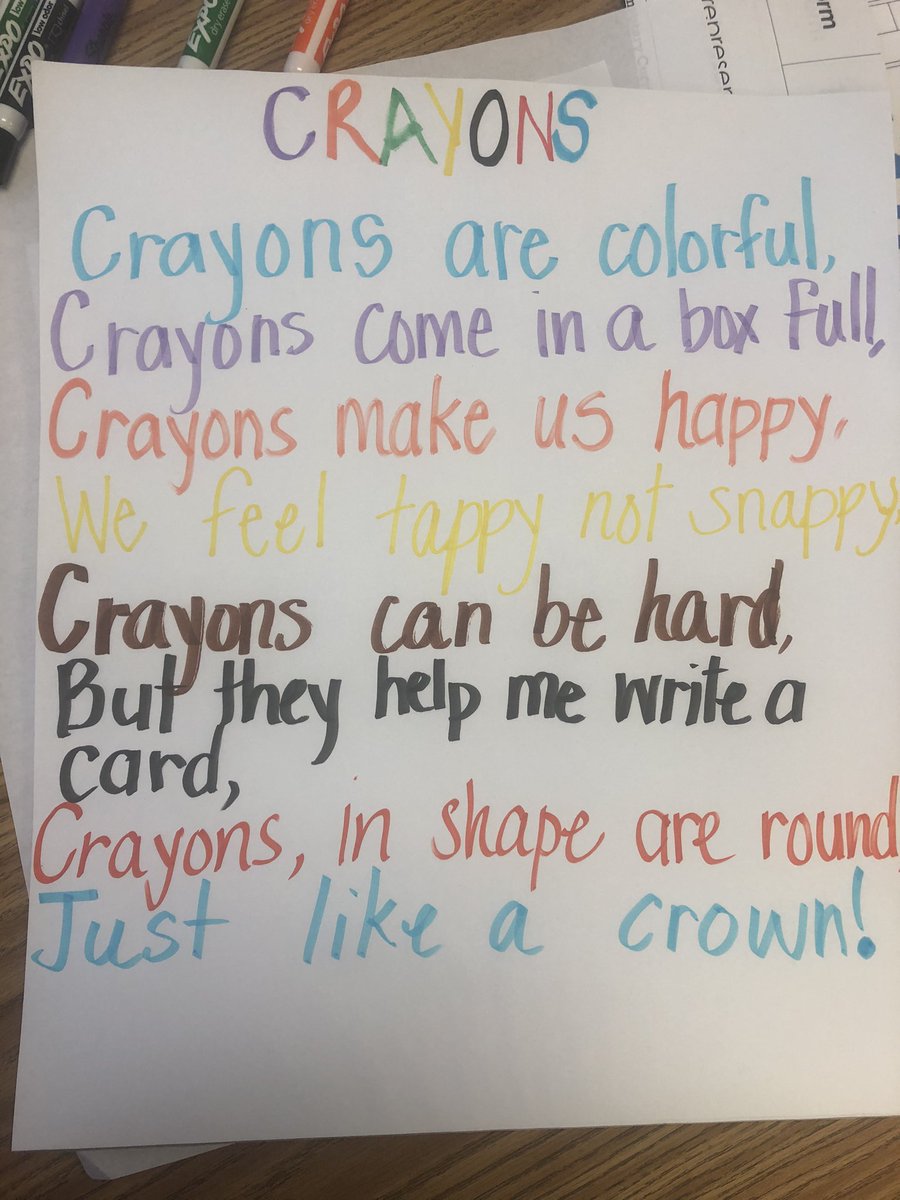 EXPO low odor
EXPO dry erase
orm
represen
CRAYONS
Crayons are colorful,
Crayons come in a box full,
Crayons make us happy,
We feel tappy not snappy,
Crayons can be hard,
But they help me write a
card,
Crayons, in shape are round,
Just like a crown!